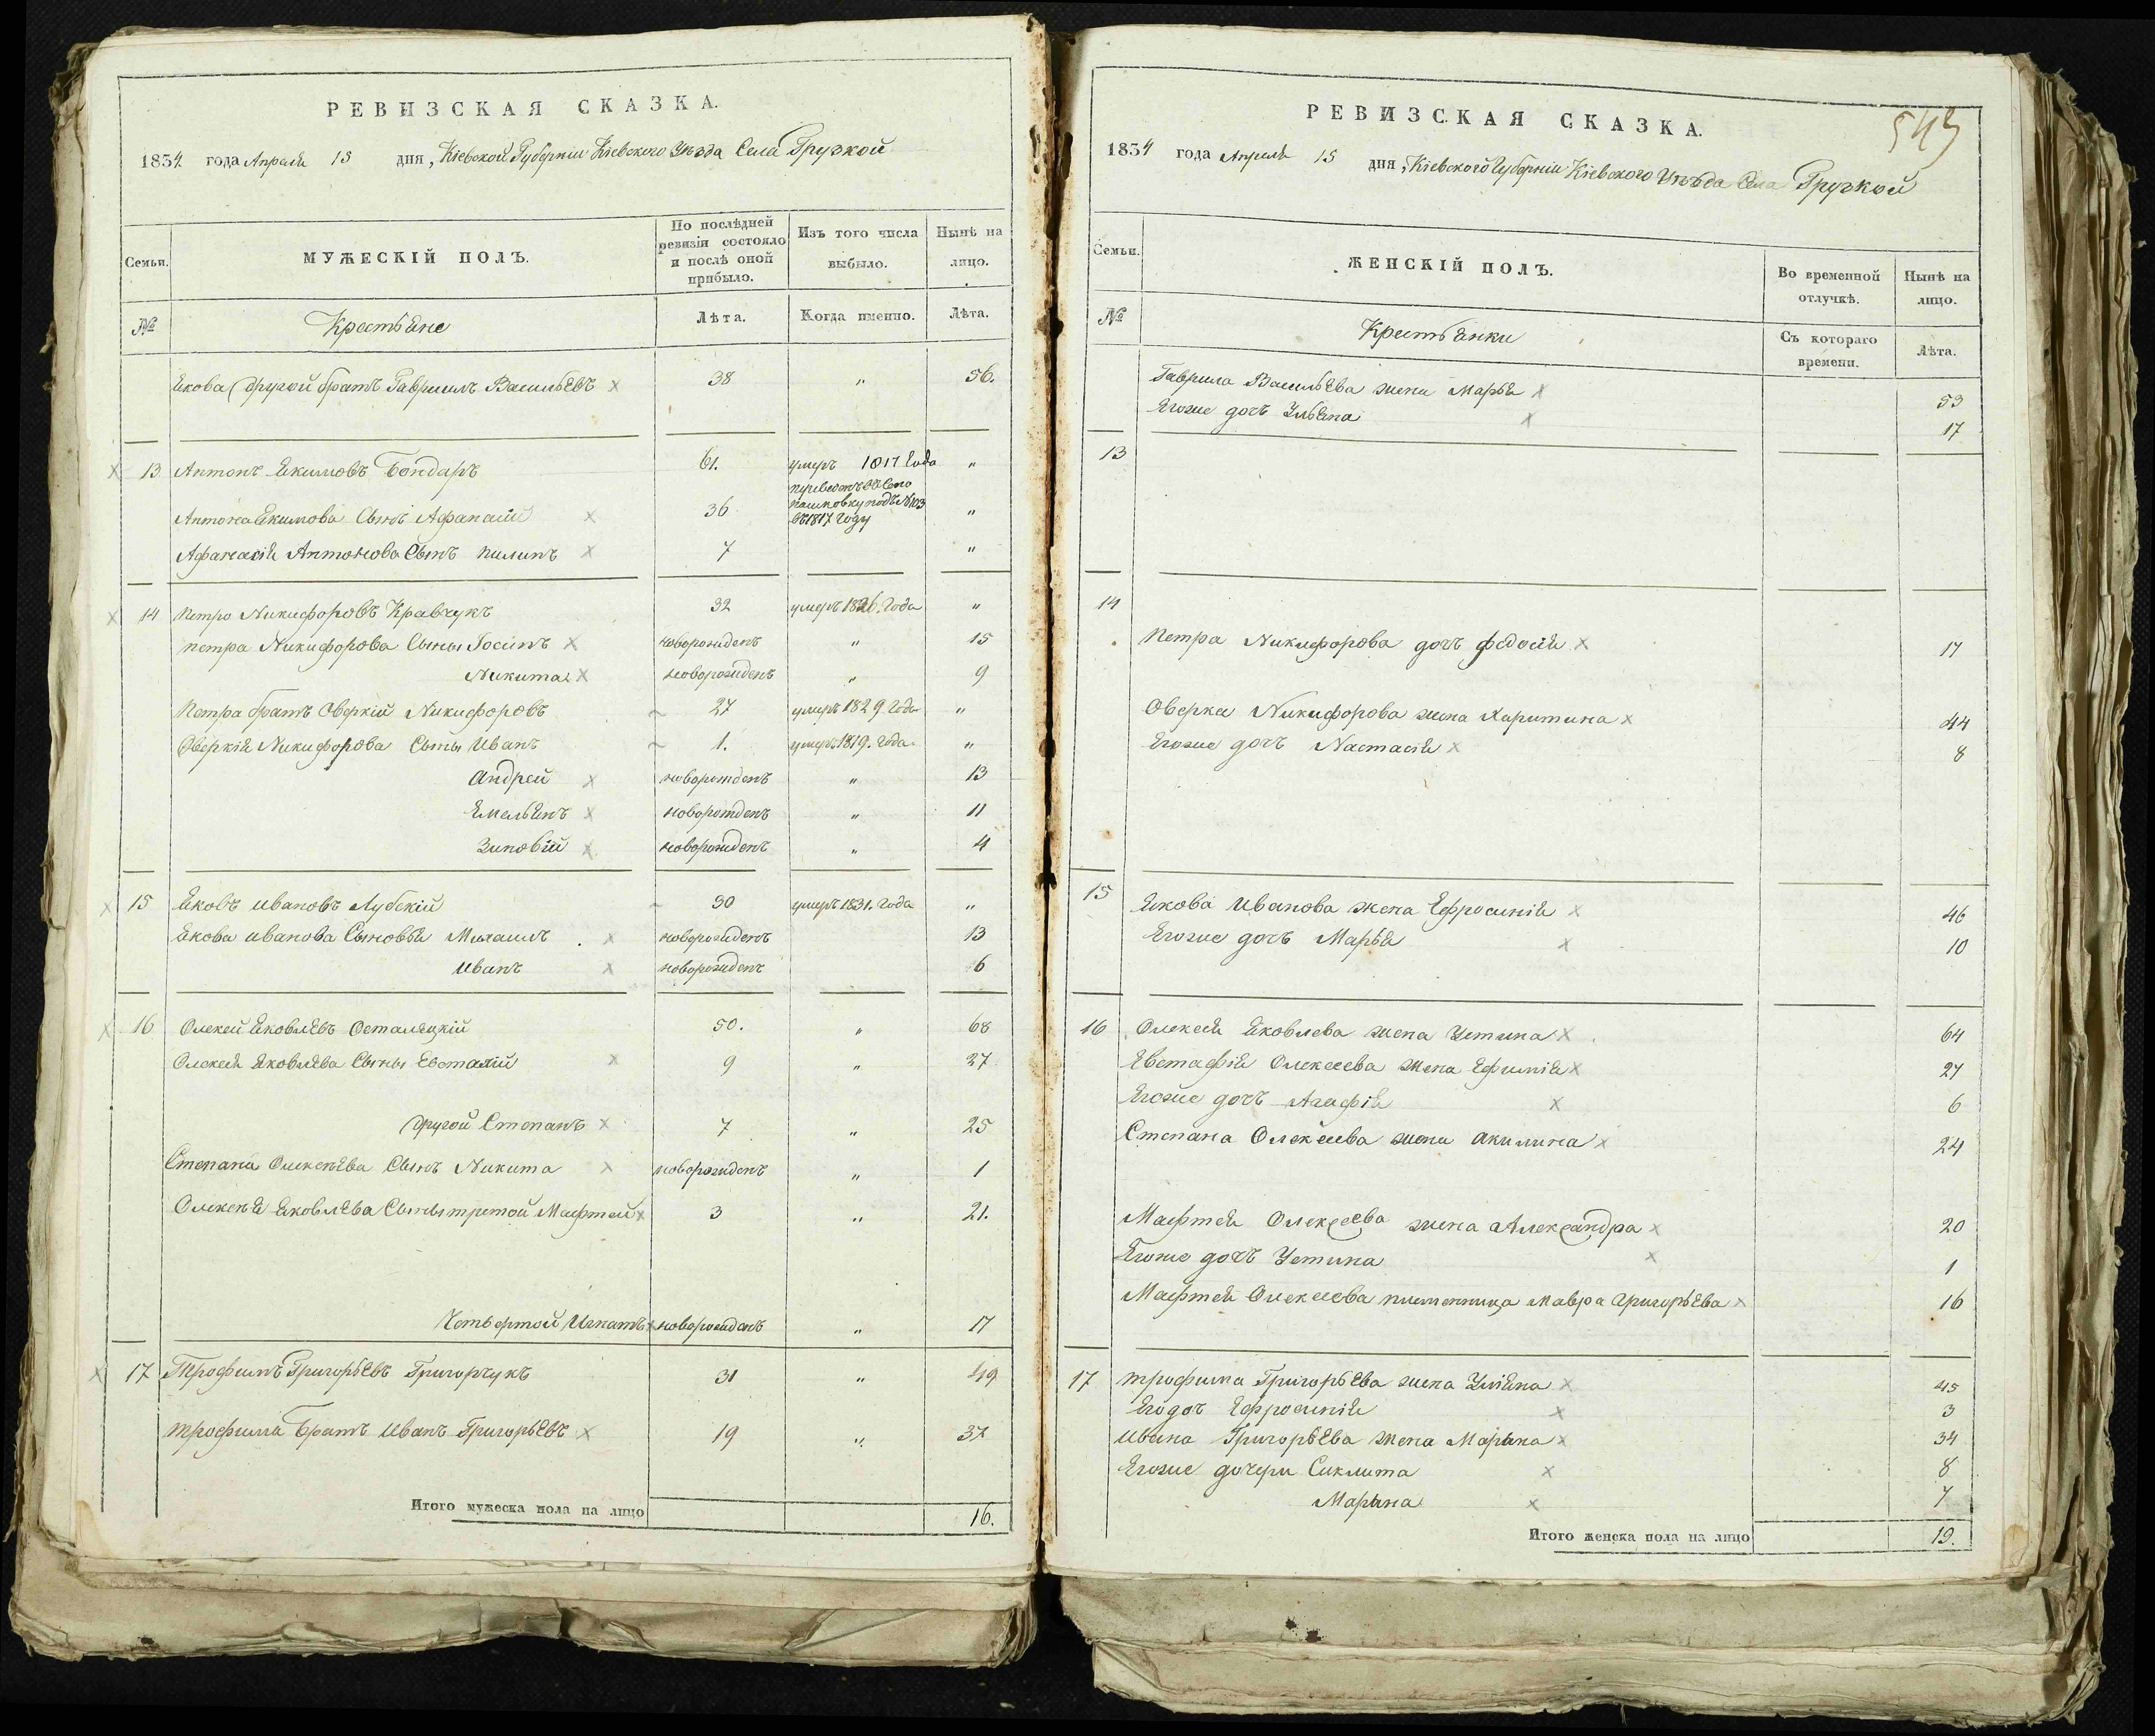 РЕВИЗСКАЯ СКАЗКА.
1834 года Апреля 15 дня, Кіевской Губерніи Кіевского Уѣзда Села Грузкой
Семьи.
МУЖЕСКІЙ ПОЛЪ.
По послѣдней
ревизіи состояло
и послѣ оной
прибыло.
Изъ того числа
выбыло.
Нынѣ на
лицо.
№
Крестьяне
Лѣта.
Когда именно.
Лѣта.
Якова другой братъ Гавриилъ Васильевъ х 38 „ 56.
х 13 Антонъ Якимовъ Бондарь 61. умеръ 1817 Года „
Антона Якимова Сынъ Афанасій х 36 переведенъ въ Село
Пашковку подъ №103
въ 1817 Году „
Афанасія Антонова Сынъ пилипъ х 7 „
х 14 Петро Никифоровъ Кравчукъ 32 умеръ 1826. Года „
петра Никифорова Сыны Іосипъ х новорожденъ „ 15
Никита х новорожденъ „ 9
Петра братъ Оверкій Никифоровъ 27 умеръ 1829 Года „
Оверкія Никифорова Сыны Иванъ 1. умеръ 1819. Года. „
Андрей х новорожденъ „ 13
Емельянъ х новорожденъ „ 11
Зиновій х новорожденъ „ 4
х 15 Яковъ Ивановъ Лубскій 30 умеръ 1831. Года „
Якова Иванова Сыновья Михаилъ х новорожденъ 13
Иванъ х новорожденъ 6
х 16 Олексей Яковлевъ Осталецкій 50. „ 68
Олексея Яковлева Сыны Евстафій х 9 „ 27
другой Степанъ х 7 „ 25
Степана Олексеева Сынъ Никита х новорожденъ „ 1
Олексея Яковлева Сыны третой Мафтей х 3 „ 21.
Четвертой Игнатъ х новорожденъ „ 17
х 17 Трофимъ Григорьевъ Григорчукъ 31 „ 49
трофима братъ Иванъ Григорьевъ х 19 „ 37
Итого мужеска пола на лицо 16.
543
РЕВИЗСКАЯ СКАЗКА.
1834 года Апреля 15 дня, Кіевского Губерніи Кіевского Уѣзда Села Грузкой
Семьи.
ЖЕНСКІЙ ПОЛЪ.
Во временной
отлучкѣ.
Нынѣ на
лицо.
№
Крестьянки
Съ котораго
времени.
Лѣта.
Гаврила Васильева жена Марья х 53
Егоже дочъ Ульяна х 17
13
14
Петра Никифорова дочъ федосія х 17
Оверка Никифорова жена Харитина х 44
Егоже дочъ Настасія х 8
15 Якова Иванова жена Ефросинія х 46
Егоже дочъ Марья х 10
16 Олексея Яковлева жена Устина х 64
Евстафія Олексеева жена Ефимія х 27
Егоже дочъ Агафія х 6
Степана Олексеева жена акилина х 24
Мафтея Олексеева жена Александра х 20
Егоже дочъ Устина х 1
Мафтея Олексеева племенница Мавра Григорьева х 16
17 трофима Григорьева жена Уліяна х 45
Его доч Ефросинія х 3
Ивана Григорьева жена Марина х 34
Егоже дочери Сиклита х 8
Марина х 7
Итого женска пола на лицо 19.